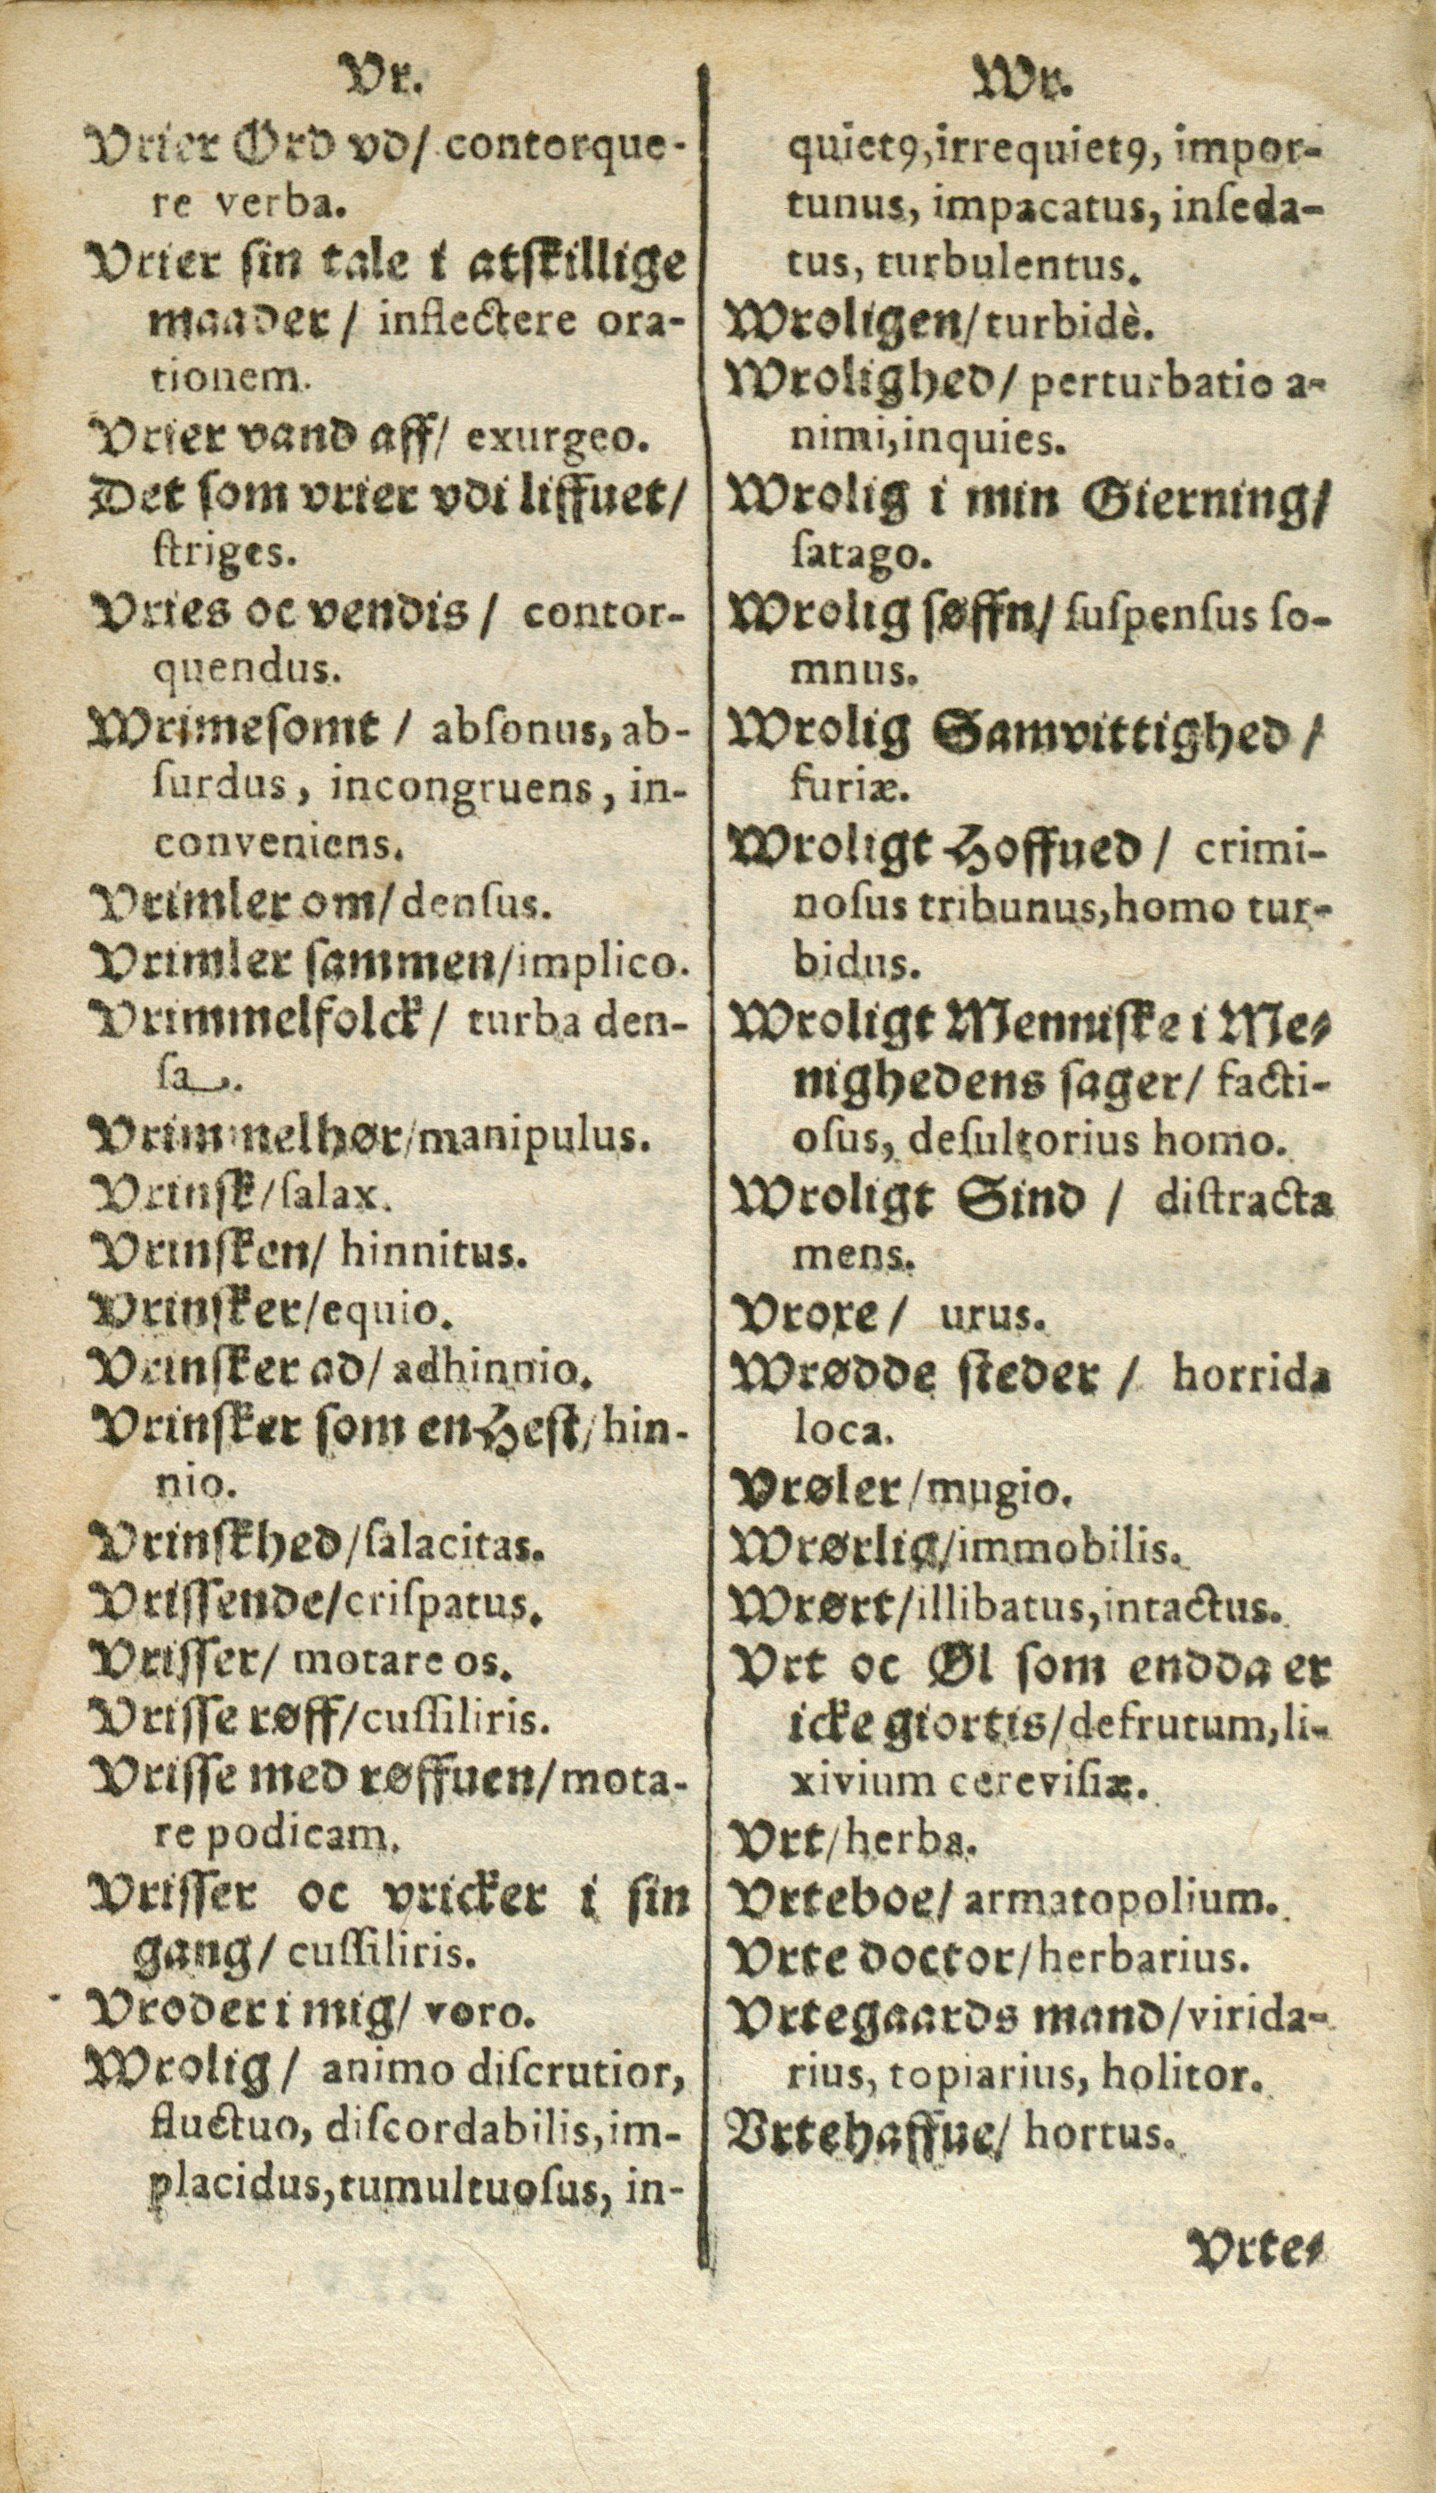 Vr.
Vrier Ord vd/ contorque-
re verba.
Vrier ſin tale i atſkillige
maader / inflectere ora-
tionem.
Vrier vand aff/ exurgeo.
Det ſom vrier vdi liffuet/
ſtriges.
Vries oc vendis / contor-
quendus.
Wrimeſomt / abſonus, ab-
ſurdus, incongruens, in-
conveniens.
Vrimler om/denſus.
Vrimler ſammen/implico.
Vrimmelfolck/ turba den-
ſa.
Vrimmelhør/manipulus.
Vrinſk/ſalax.
Vrinſken/ hinnitus.
Vrinſker/equio.
Vrinſker ad/ adhinnio.
Vrinſker ſom en Heſt/hin-
nio.
Vrinſkhed/ſalacitas.
Vriſſende/criſpatus.
Vriſſer/ motare os.
Vriſſe røff/cuſſiliris.
Vriſſe med røffuen/mota-
re podicam.
Vriſſer oc vricker i ſin
gang/ cuſſiliris.
Vroder i mig/ voro.
Wrolig/ animo diſcrutior,
fluctuo, diſcordabilis, im-
placidus, tumultuoſus, in-
Wr.
quietꝰ, irrequietꝰ, impor-
tunus, impacatus, inſeda-
tus, turbulentus.
Wroligen/turbidè.
Wrolighed/ perturbatio a-
nimi, inquies.
Wrolig i min Gierning/
ſatago.
Wrolig ſøffn/ ſuſpenſus ſo-
mnus.
Wrolig Samvittighed /
furiæ.
Wroligt Hoffued / crimi-
noſus tribunus, homo tur-
bidus.
Wroligt Menniſke i Me-
nighedens ſager/ facti-
oſus, deſultorius homo.
Wroligt Sind / diſtracta
mens.
Vroxe / urus.
Wrødde ſteder / horrida
loca.
Vrøler/mugio.
Wrørlig/immobilis.
Wrørt/illibatus, intactus.
Vrt oc Øl ſom endda er
icke giortis/defrutum, li-
xivium cereviſiæ.
Vrt/herba.
Vrteboe/ armatopolium.
Vrte doctor/herbarius.
Vrtegaards mand/virida-
rius, topiarius, holitor.
Vrtehaffue/ hortus.
Vrte-